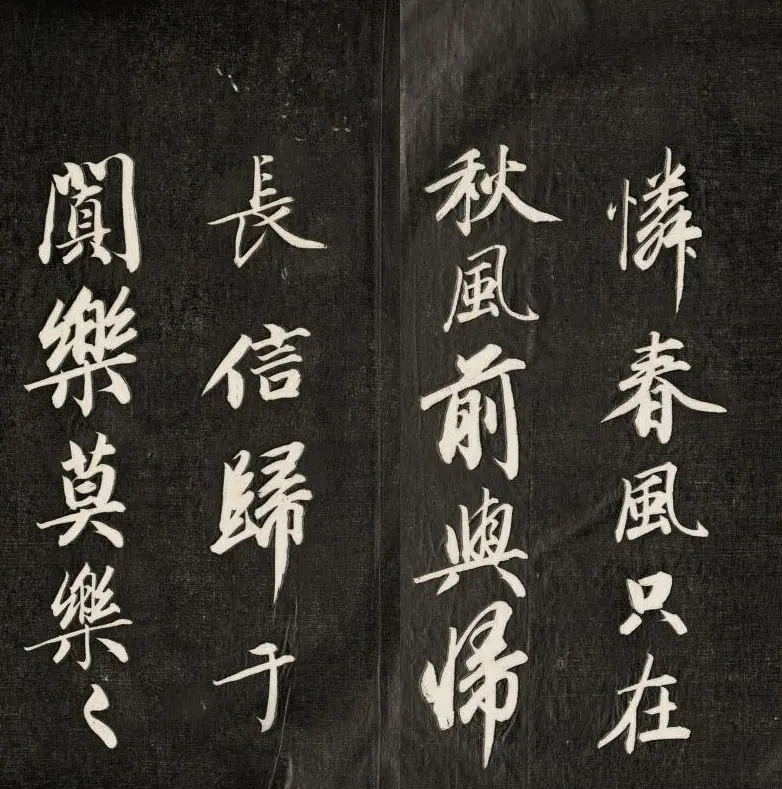 憐春風只在
秋風前與帰
長信歸于
闐樂莫樂々